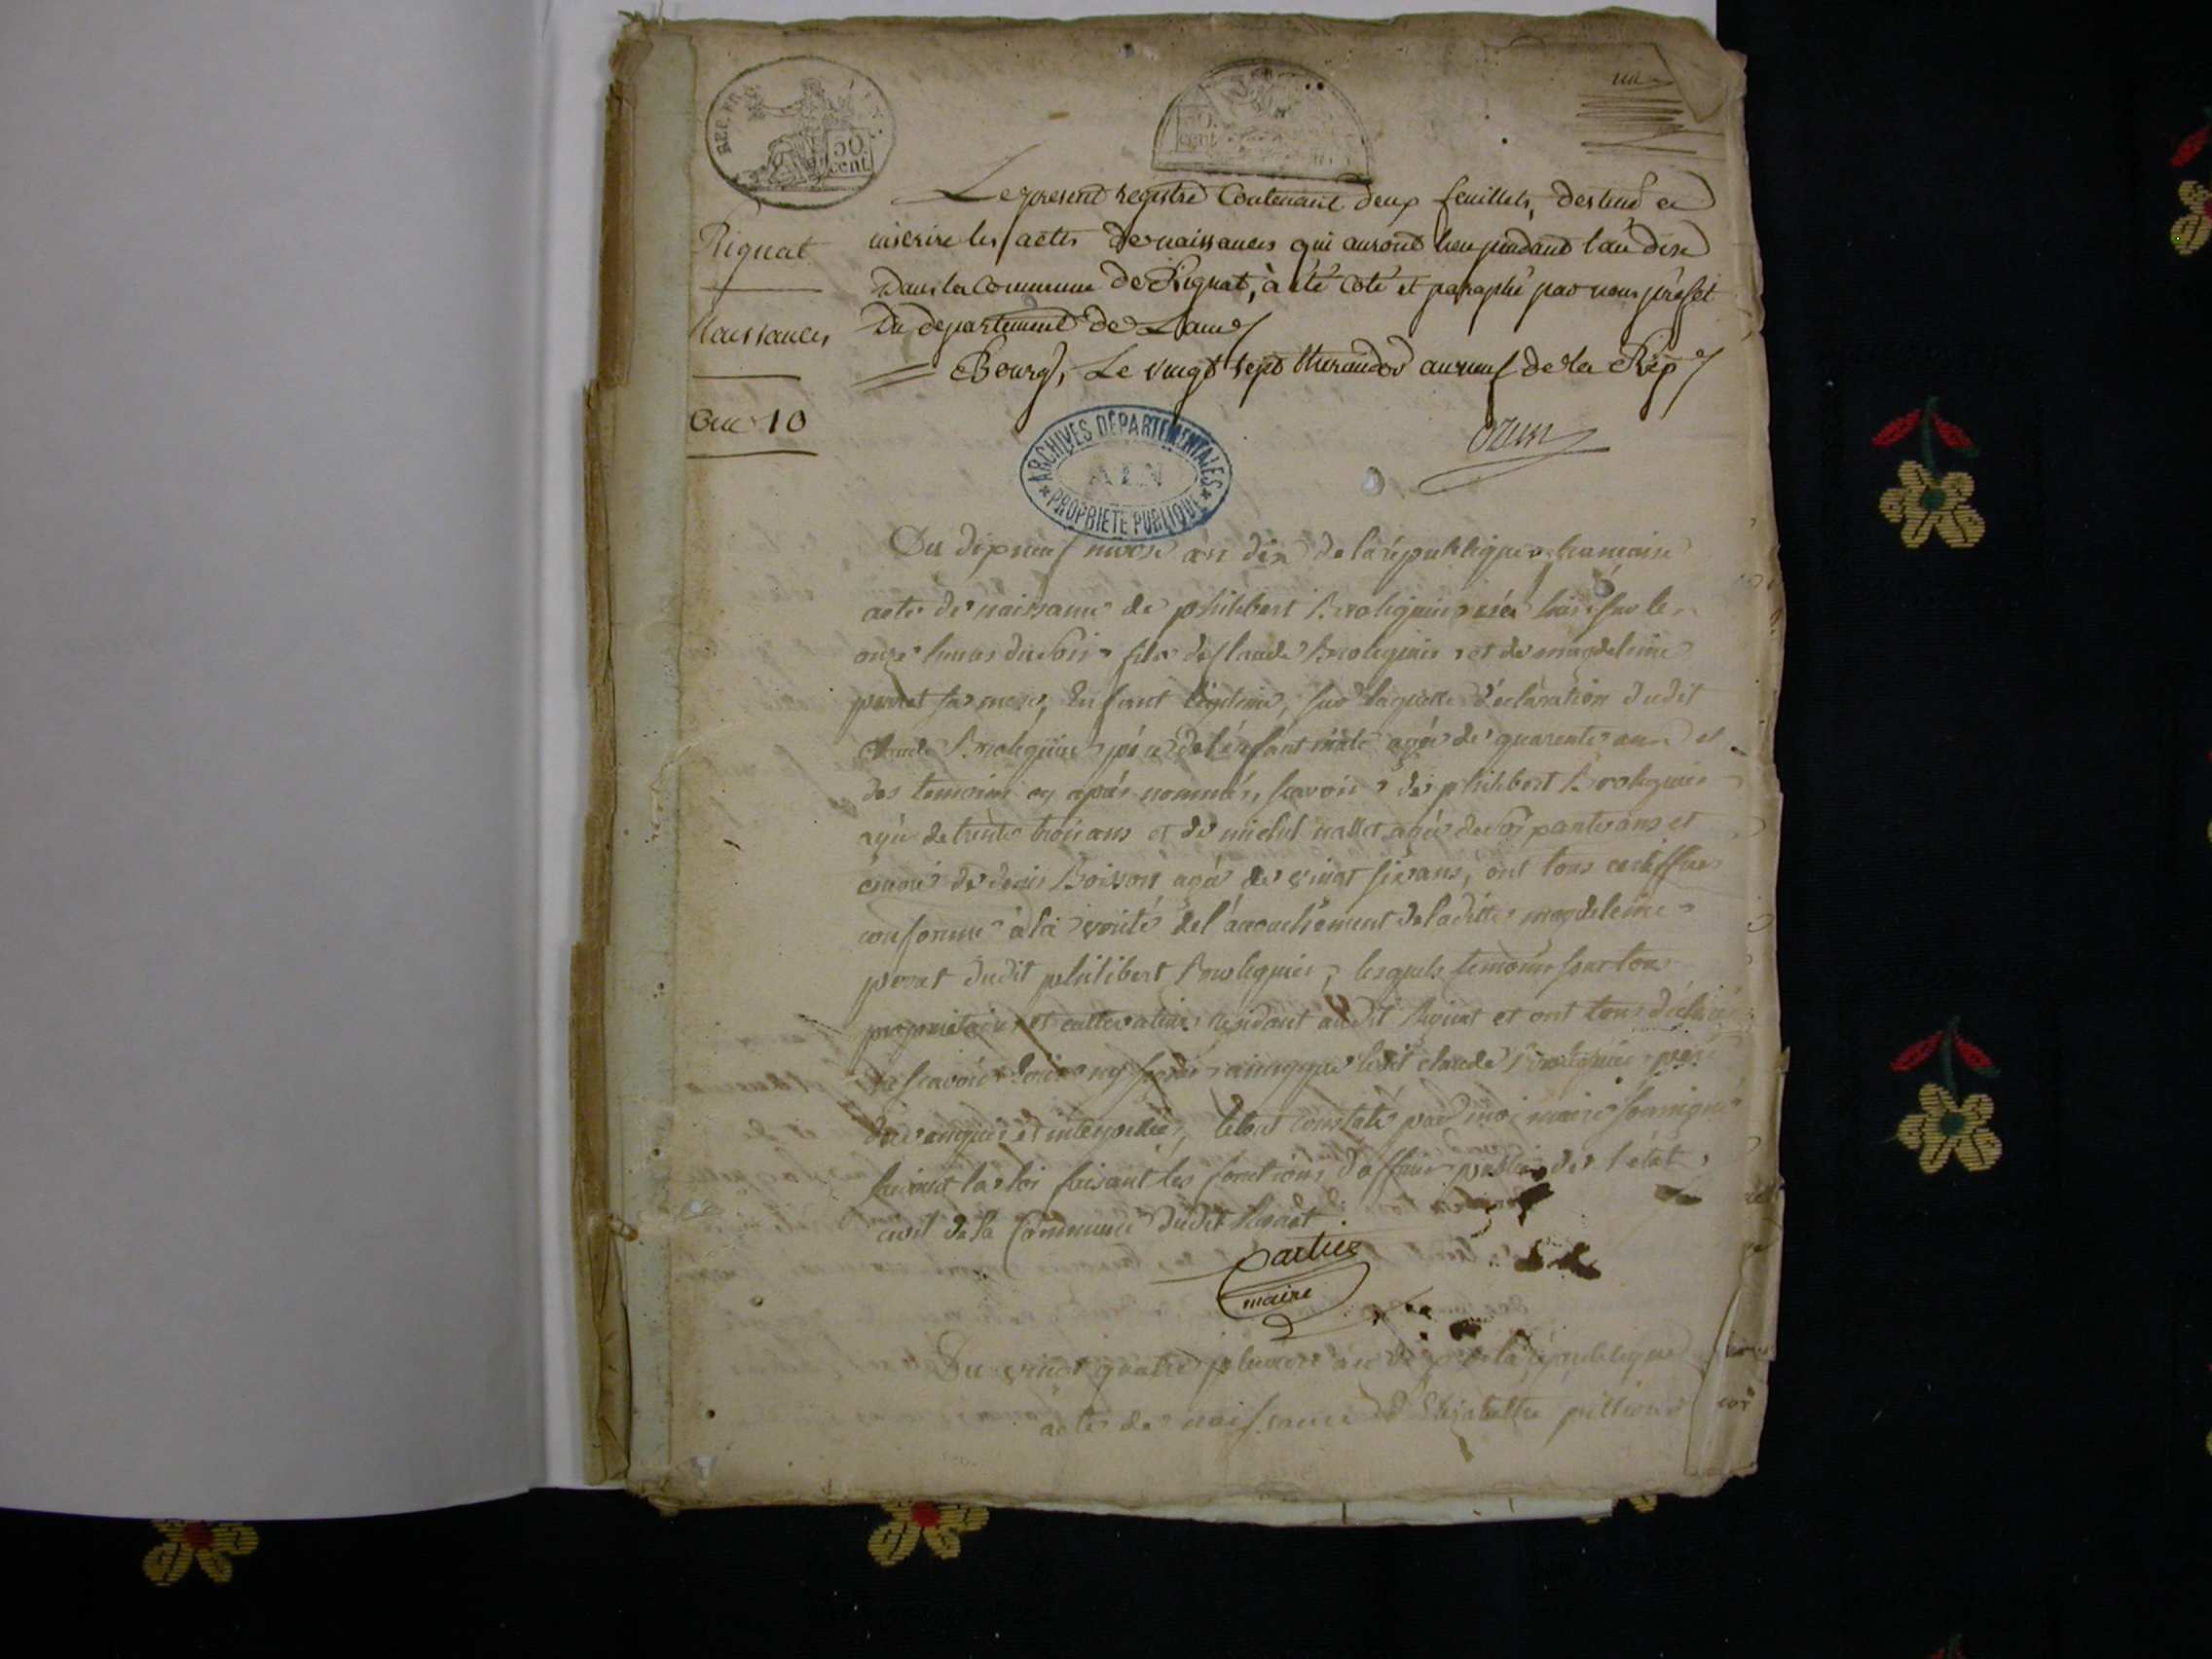 REP. FRA.
50.
cent
50.
cent
un
Le present registre Contenant deux feuillets, destiné a
Rignat
inscrire les actes de naissances qui auront lieu pendant l'an dix
dans la Commune de Rignat, à été coté et paraphé par nous préfet
Naissances
du departement de L'ain
Bourg, Le vingt sept thermidor an neuf de la Rép
an 10
ozun
ARCHIVES DÉPARTEMENTALES
AIN
PROPRIÉTÉ PUBLIQUE
Du dix neuf nivose an dix de la république francaise
acte de naissance de philibert Broliquier né hier sur le
onze heures du soir fils de Claude Broliquier et de magdeleine
perret sa mere, Enfant légitime, sur laquelle déclaration dudit
Claude Broliquier père de l'enfant mâle agé de quarente ans et
des temoins cy aprés nommés, scavoir de philibert Broliquier
agé de trente trois ans et de michel nallet agé de soixante ans et
encore de denis Boisson agé de vingt six ans, ont tous certiffiée
conforme à la verité de l'accouchement de laditte magdeleine
perret dudit philibert Broliquier, lesquels temoins sont tous
proprietaires et cultivateurs residant audit Rignat et ont tous déclaré
ne scavoir Ecrire ny signer ainsy que ledit claude Broliquier pere
de ce enquis et interpellés, le tout constaté par moi maire soussigné
suivant la loi faisant les fonctions d'officier public de l'état
civil de la Commune dudit Rignat
maire
Du vingt quatre pluviose an dix de la république
acte de naissance d'Elizabeth